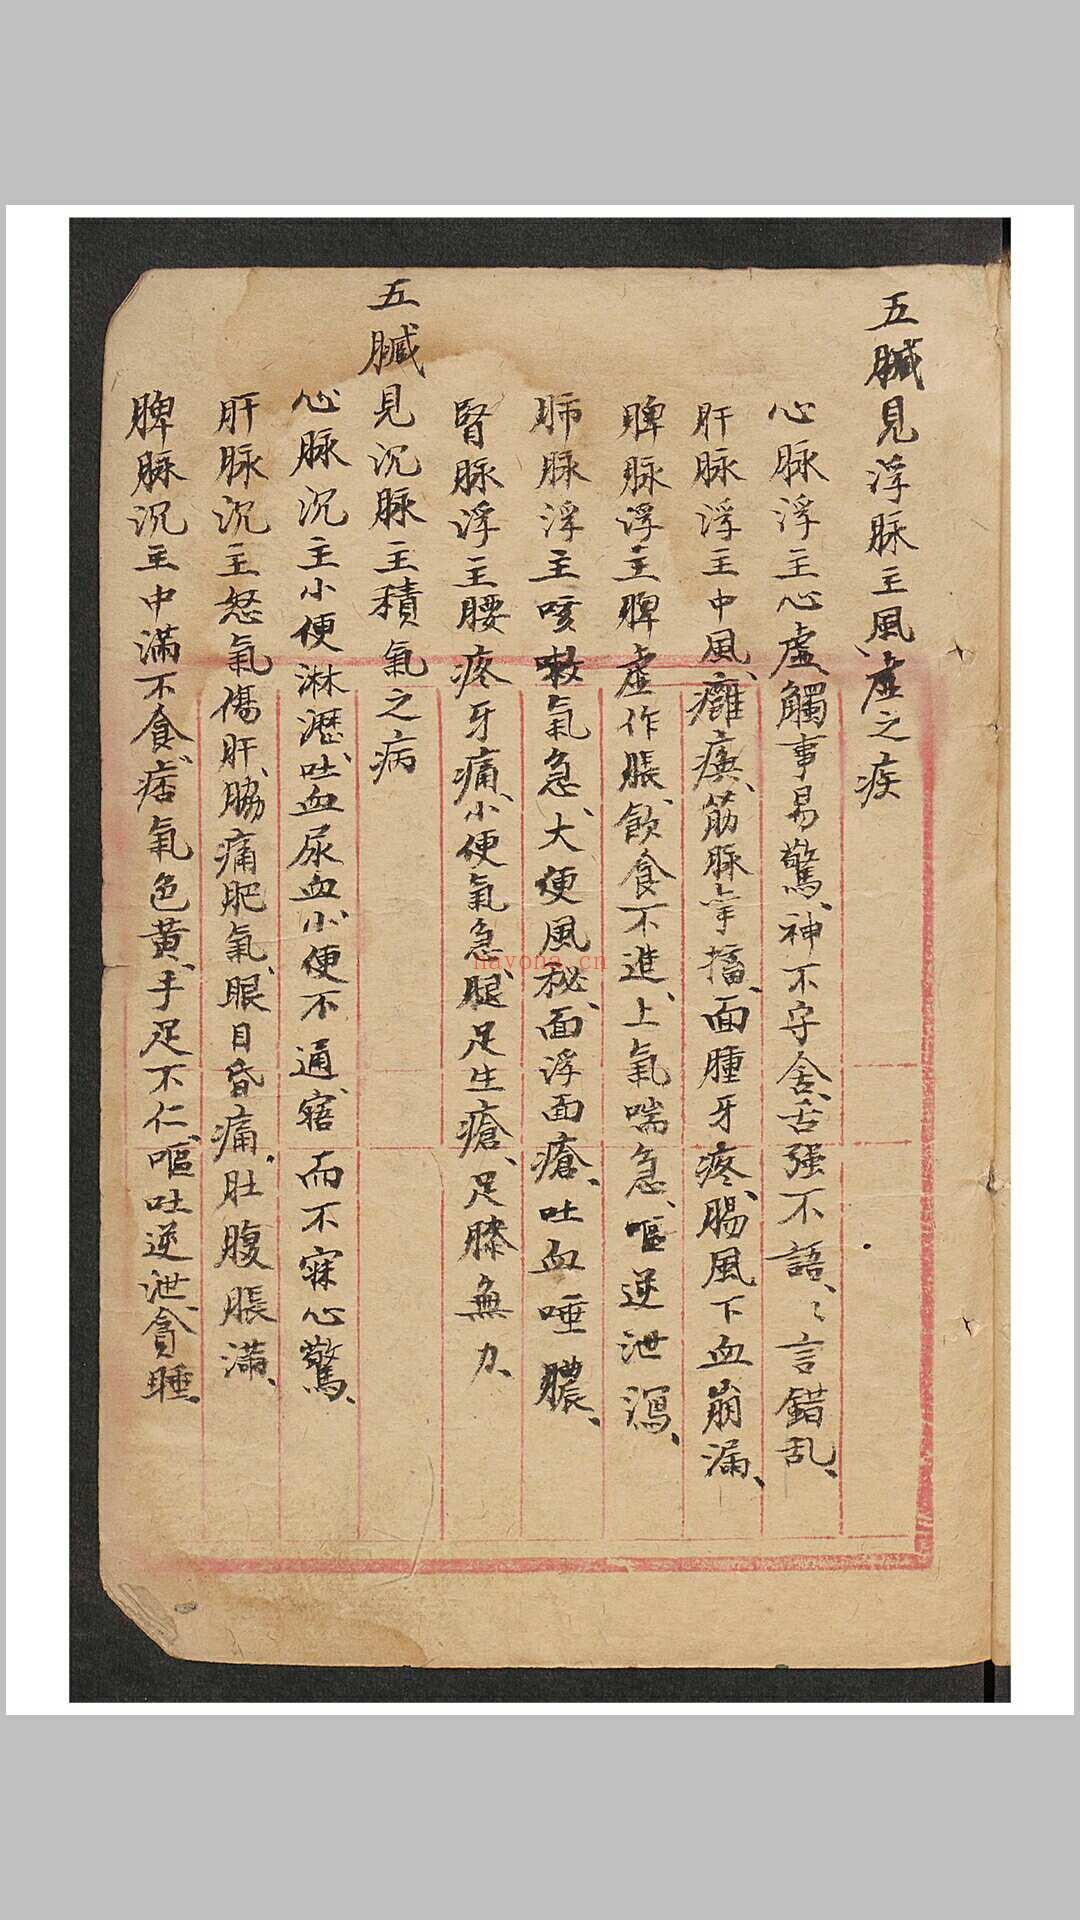 五臟見浮脉主風、虛之疾
心脉浮主心虛觸事易驚、神不守舍、舌强不語、〻言錯乱、
肝脉浮主中風、癱瘓、筋脉牽搐、面腫牙疼、腸風下血崩漏、
脾脉浮主脾虛作脹、飲食不進、上氣喘急、嘔逆泄瀉、
肺脉浮主咳嗽氣急、大便風秘、面浮面瘡、吐血唾膿、
腎脉浮主腰疼牙痛、小便氣急、腿足生瘡、足膝無力、
五臟見沉脉主積氣之病
心脉沉主小便淋瀝、吐血尿血、小便不通、寤而不寐心驚、
肝脉沉主怒氣傷肝、脇痛肥氣、眼目昏痛、肚腹脹滿、
脾脉沉主中滿不食、痞氣色黃、手足不仁、嘔吐逆泄、貪睡、
nayona.cn